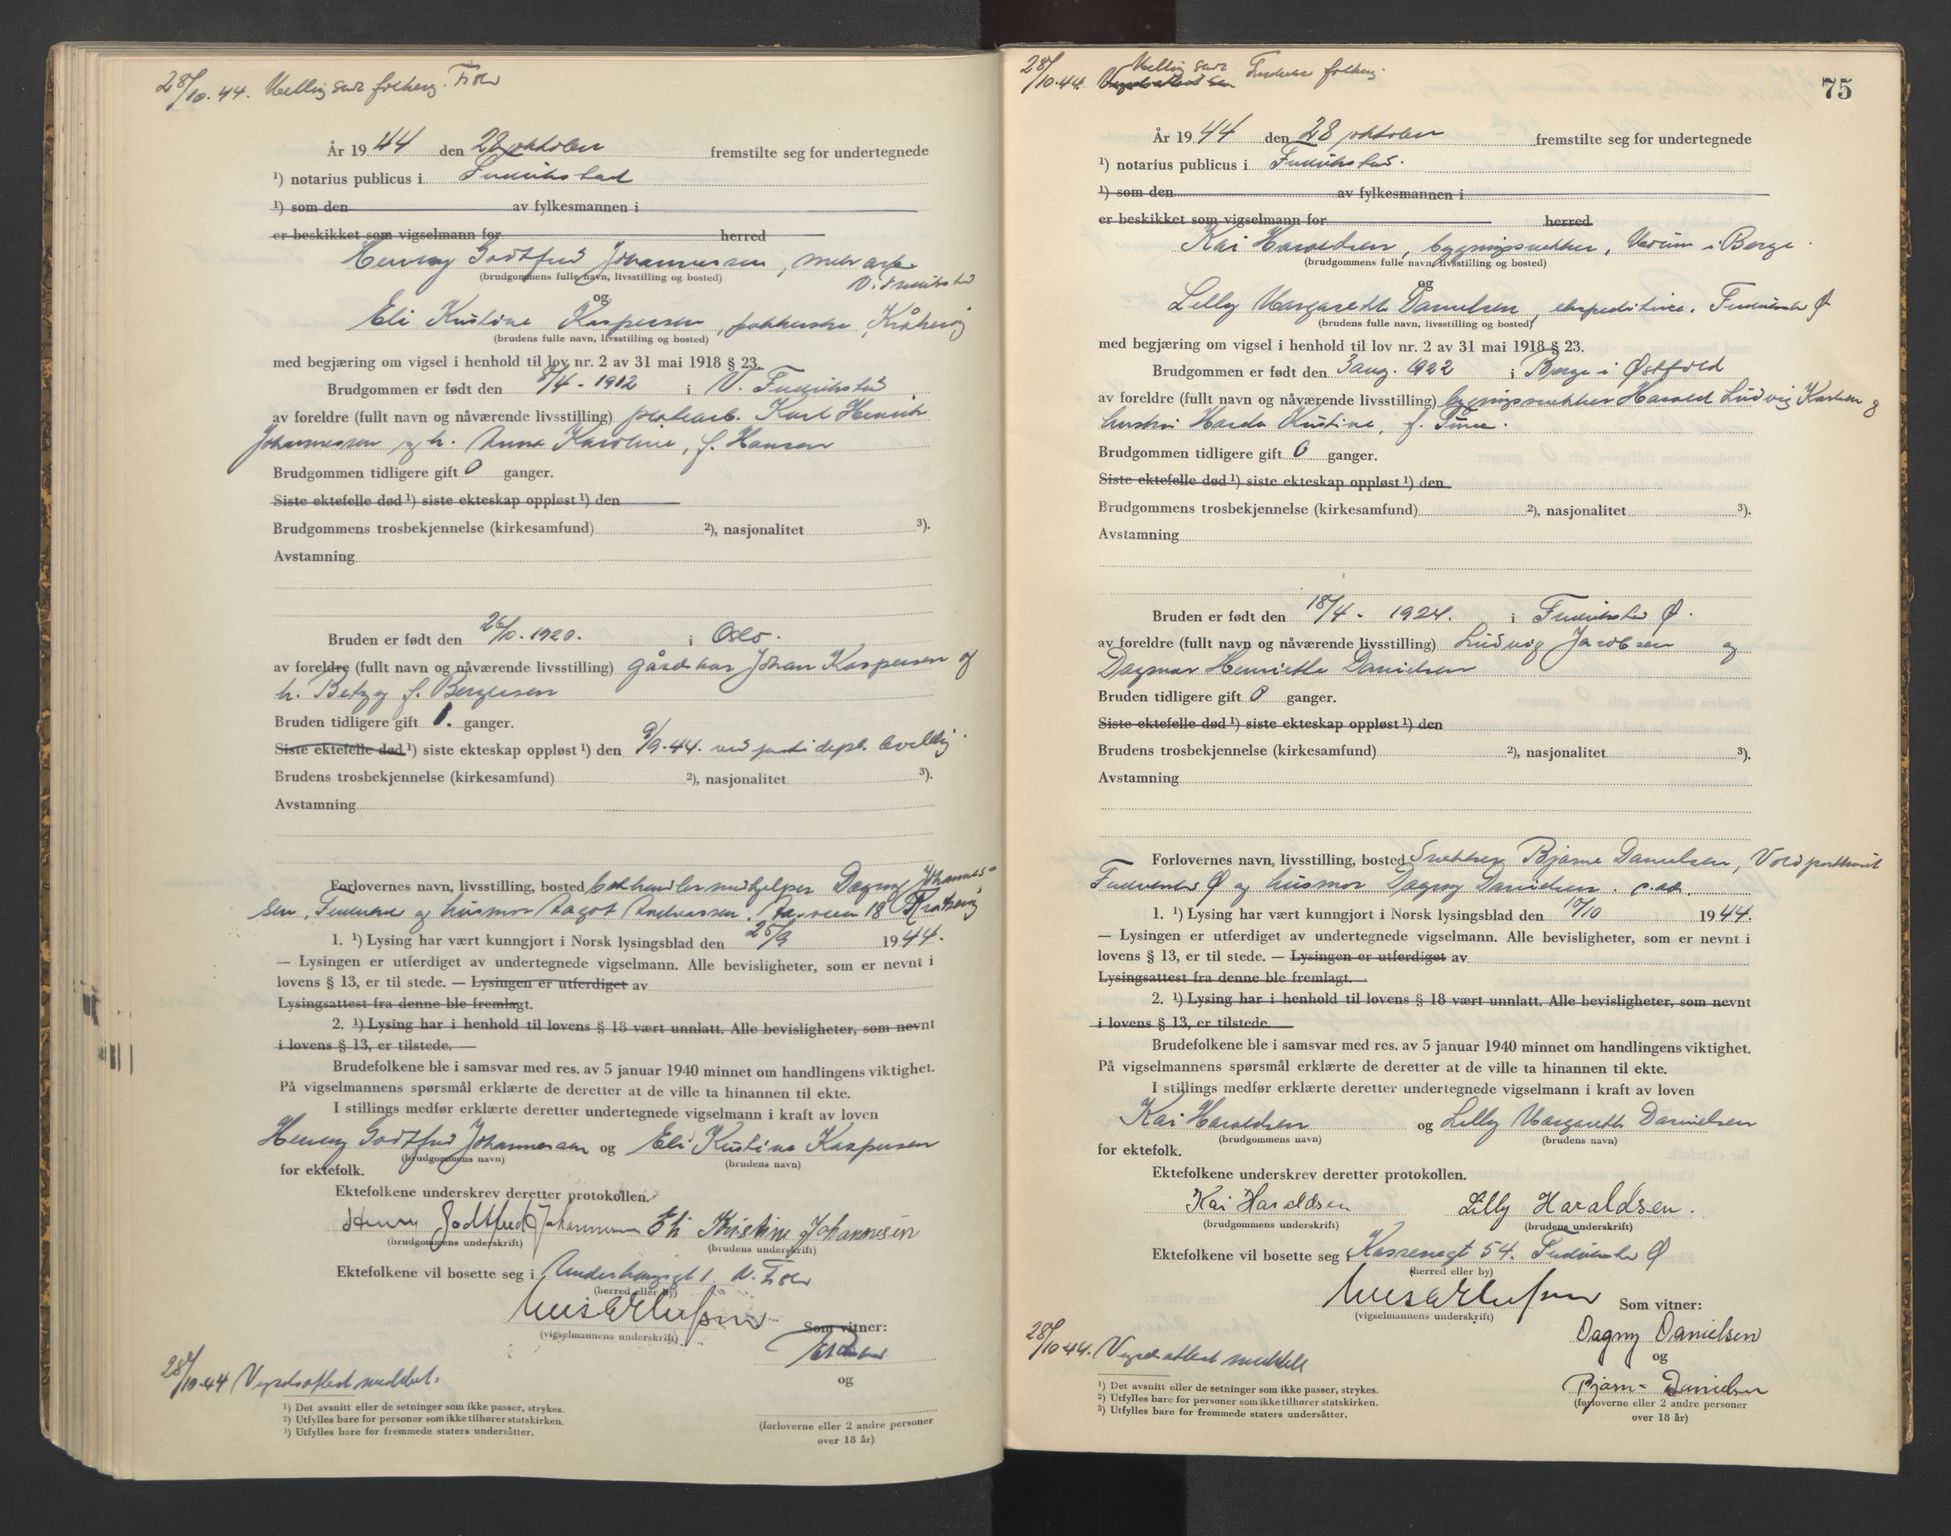 28/10.44. Melling sendt folkereg. F.stad
År 1944 den 28 oktober fremstilte seg for undertegnede
¹) notarius publicus i Fredrikstad
¹) som den av fylkesmannen i
er beskikket som vigselmann for herred
Henry Godtfred Johannessen,
V. Fredrikstad
(brudgommens fulle navn, livsstilling og bosted)
og
Eli Kristine Kaspersen, Kråkerøy
(brudens fulle navn, livsstilling og bosted)
med begjæring om vigsel i henhold til lov nr. 2 av 31 mai 1918 § 23.
Brudgommen er født den 8/4 - 1912 i V. Fredrikstad
av foreldre (fullt navn og nåværende livsstilling) Karl Henrik
Johannessen og h. Anna Karoline, f. Hansen
Brudgommen tidligere gift 0 ganger.
Siste ektefelle død ¹) siste ekteskap oppløst ¹) den
Brudgommens trosbekjennelse (kirkesamfund) ²), nasjonalitet ³).
Avstamning
Bruden er født den 26/10. 1920. i Oslo.
av foreldre (fullt navn og nåværende livsstilling) Johan Kaspersen og
h. Betzy f. Bergersen
Bruden tidligere gift 1. ganger.
Siste ektefelle død ¹) siste ekteskap oppløst ¹) den 9/9.44. ved
Brudens trosbekjennelse (kirkesamfund) ²), nasjonalitet ³).
Avstamning
Forlovernes navn, livsstilling, bosted Dagny Johannes=
sen, Fredrikstad og husmor Aagot Andreassen, 18 Kråkerøy
1. ¹) Lysing har vært kunngjort i Norsk lysingsblad den 25/9 1944.
— Lysingen er utferdiget av undertegnede vigselmann. Alle bevisligheter, som er nevnt i
lovens § 13, er til stede. — Lysingen er utferdiget av
Lysingsattest fra denne ble fremlagt.
2. ¹) Lysing har i henhold til lovens § 18 vært unnlatt. Alle bevisligheter, som nevnt
i lovens § 13, er tilstede. —
Brudefolkene ble i samsvar med res. av 5 januar 1940 minnet om handlingens viktighet.
På vigselmannens spørsmål erklærte de deretter at de ville ta hinannen til ekte.
I stillings medfør erklærte deretter undertegnede vigselmann i kraft av loven
Henry Godtfred Johannessen og Eli Kristine Kaspersen
(brudgommens navn) (brudens navn)
for ektefolk.
Ektefolkene underskrev deretter protokollen.
Henry Godtfred Johannessen Eli Kristine Johannesen
(brudgommens underskrift) (brudens underskrift)
Ektefolkene vil bosette seg i 1. V. F.stad
(herred eller by)
(vigselmannens underskrift)
Som vitner:
og
28/10.44 Vigselsattest meddelt.
¹) Det avsnitt eller de setninger som ikke passer, strykes.
²) Utfylles bare for personer som ikke tilhører statskirken.
³) Utfylles bare for fremmede staters undersåtter.
(forloverne eller 2 andre personer
over 18 år)
75
28/10.44. Vigselsattest sen Melling sendt Fredrikstad folkereg.
År 1944 den 28 oktober fremstilte seg for undertegnede
¹) notarius publicus i Fredrikstad.
¹) som den av fylkesmannen i
er beskikket som vigselmann for herred
Kai Haraldsen, bygningssnekker, i Borge.
(brudgommens fulle navn, livsstilling og bosted)
og
Lilly Margareth Danielsen, ekspeditrise, Fredrikstad Ø
(brudens fulle navn, livsstilling og bosted)
med begjæring om vigsel i henhold til lov nr. 2 av 31 mai 1918 § 23.
Brudgommen er født den 3 aug. 1922 i Borge i Østfold
av foreldre (fullt navn og nåværende livsstilling) bygningssnekker Harald Ludvig Karlsen og
hustru Harda Kristine, f. Tune.
Brudgommen tidligere gift 0 ganger.
Siste ektefelle død ¹) siste ekteskap oppløst ¹) den
Brudgommens trosbekjennelse (kirkesamfund) ²), nasjonalitet ³).
Avstamning
Bruden er født den 18/4 - 1924. i Fredrikstad Ø.
av foreldre (fullt navn og nåværende livsstilling) Ludvig Jacobsen og
Dagmar Henriette Danielsen
Bruden tidligere gift 0 ganger.
Siste ektefelle død ¹) siste ekteskap oppløst ¹) den
Brudens trosbekjennelse (kirkesamfund) ²), nasjonalitet ³).
Avstamning
Forlovernes navn, livsstilling, bosted Snekker Bjarne Danielsen,
Fredrikstad Ø og husmor Dagny Danielsen.
1. ¹) Lysing har vært kunngjort i Norsk lysingsblad den 10/10 1944.
— Lysingen er utferdiget av undertegnede vigselmann. Alle bevisligheter, som er nevnt i
lovens § 13, er til stede. — Lysingen er utferdiget av
Lysingsattest fra denne ble fremlagt.
2. ¹) Lysing har i henhold til lovens § 18 vært unnlatt. Alle bevisligheter, som nevnt
i lovens § 13, er tilstede. —
Brudefolkene ble i samsvar med res. av 5 januar 1940 minnet om handlingens viktighet.
På vigselmannens spørsmål erklærte de deretter at de ville ta hinannen til ekte.
I stillings medfør erklærte deretter undertegnede vigselmann i kraft av loven
Kai Haraldsen og Lilly Margareth Danielsen
(brudgommens navn) (brudens navn)
for ektefolk.
Ektefolkene underskrev deretter protokollen.
Kai Haraldsen Lilly Haraldsen.
(brudgommens underskrift) (brudens underskrift)
Ektefolkene vil bosette seg i 54. Fredrikstad Ø
(herred eller by)
(vigselmannens underskrift)
Som vitner:
Dagny Danielsen
og
Bjarne Danielsen
28/10.44. Vigselsattest meddelt
¹) Det avsnitt eller de setninger som ikke passer, strykes.
²) Utfylles bare for personer som ikke tilhører statskirken.
³) Utfylles bare for fremmede staters undersåtter.
(forloverne eller 2 andre personer
over 18 år)